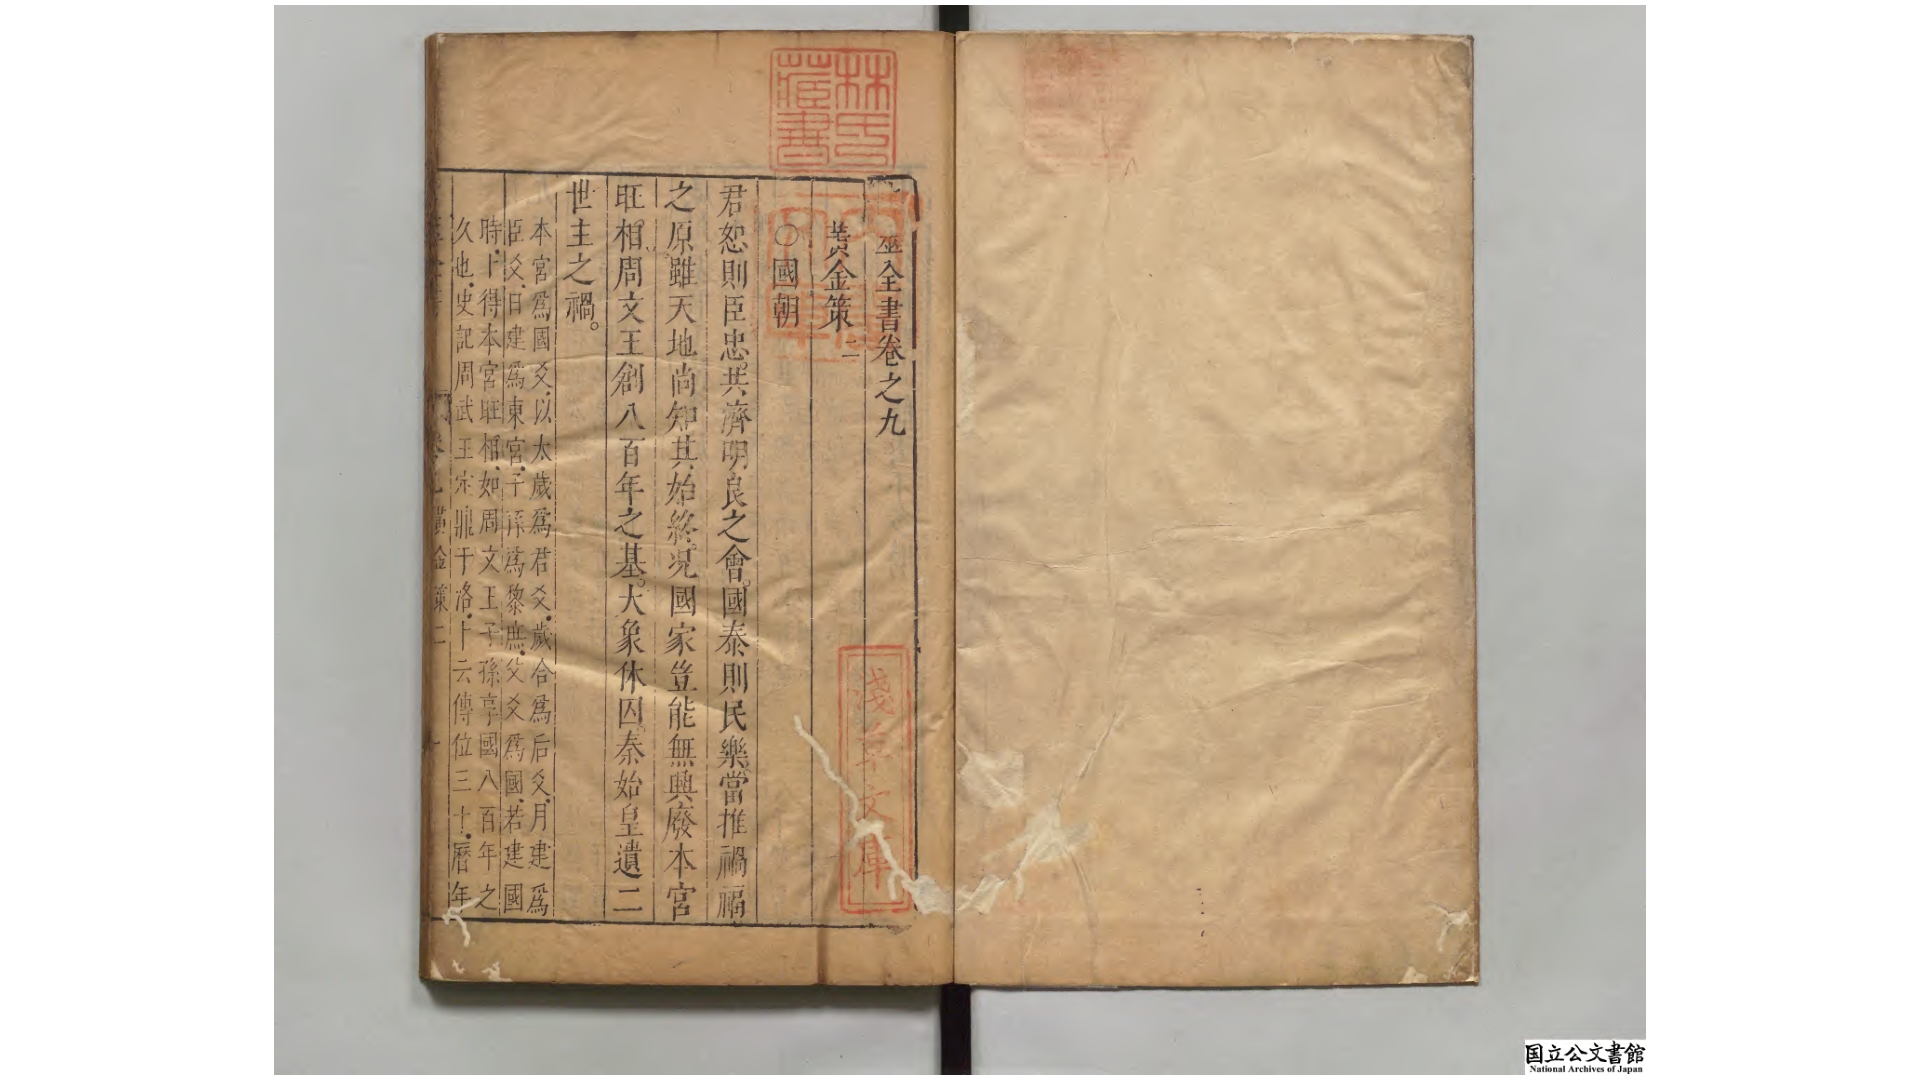 筮全書卷之九
黃金策 二
○國朝
君恕則臣忠。共濟明良之會。國泰則民樂。當推禍福
之原。雖天地尚知其始終。况國家豈能無興廢。本宮
旺相。周文王創八百年之基。大象休囚。秦始皇遺二
世主之禍。
本宮爲國爻。以太歲爲君爻。歲合爲后爻。月建爲
臣爻。日建爲東宮。子孫爲黎庶。父爻爲國。若建國
時。卜得本宮旺相。如周文王子孫享國八百年之
久也。史記周武王定鼎于洛。卜云傳位三十。曆年
卷九 黃金策二
林氏藏書
淺草文庫
国立公文書館
National Archives of Japan